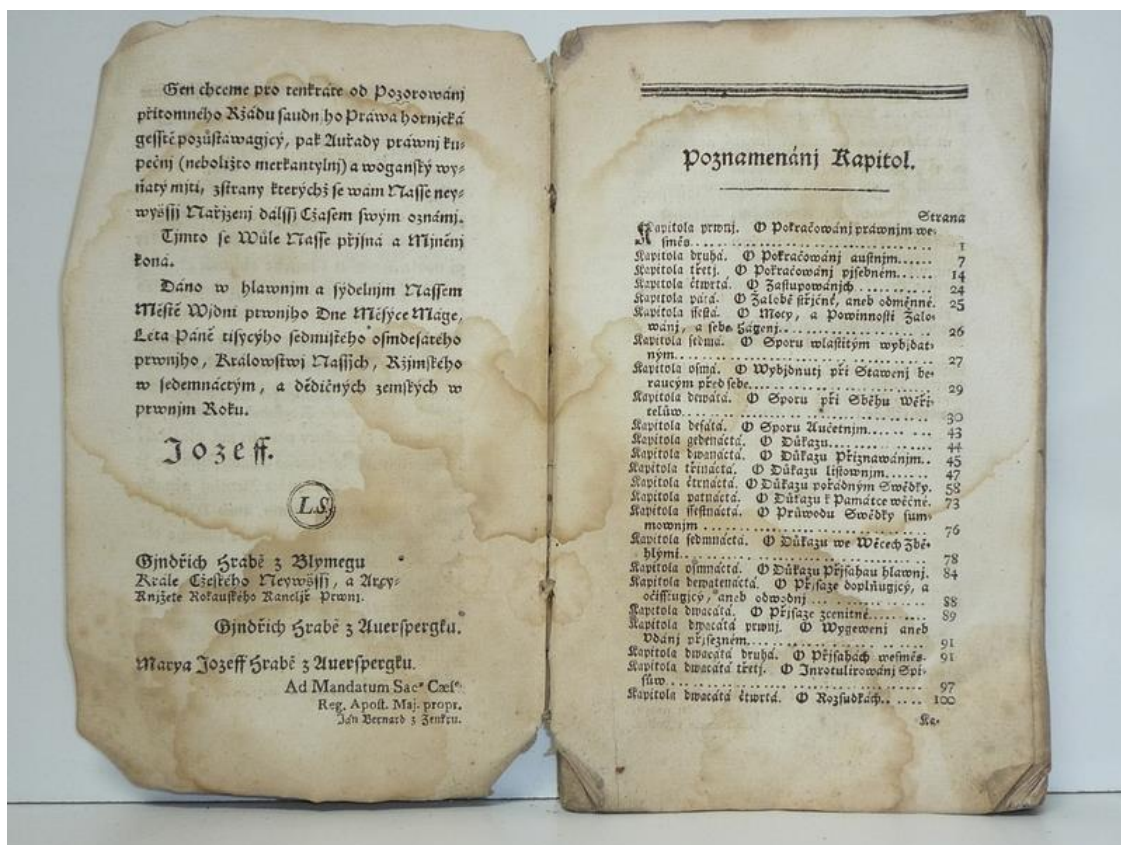 Gen chceme pro tenkráte od Pozorowánj
přitomného Ržádu saudn ho Práwa hornjcká
gessťě pozůstawagjcý, pak Auřady práwnj ku-
pečnj (neboližto merkantylnj) a woganský wy-
ňatý mjti, zstrany kterýchž se wám Nasse ney-
wyšssj Nařjzenj dálssj Cžasem swým oznámj.
Tjmto se Wůle Nasse přjsná a Mjněnj
koná.
Dáno w hlawnjm a sýdelnjm Nassem
Městě Wjdni prwnjho Dne Měsýce Máge,
Léta Páně tisýcýho sedmistého osmdesátého
prwnjho, Králowstwj Nassjch, Ržjmského
w sedemnáctým, a dědičných zemských w
prwnjm Roku.
Jozeff.
L.S.
Gjndřich Hrabě z Blymegu
Krále Cžeského Neywšssj, a Arcy-
Knjžete Rokauského Kancljř Prwnj.
Gjndřich Hrabě z Auerspergku.
Marya Jozeff Hrabě z Auerspergku.
Ad Mandatum Sac. Cæs.
Reg. Apost. Maj. propr.
Jan Bernard z Zenkru.
Poznamenánj Kapitol.
Strana
Kapitola prwnj. O Pokračowánj práwnjm we-
směs. 1
Kapitola druhá. O Pokračowánj austnjm. 7
Kapitola třetj. O Pokračowánj pjsebném. 14
Kapitola čtwrtá. O Zastupowánjch. 24
Kapitola pátá. O Žalobě střjčné, aneb odměnné. 25
Kapitola ssestá. O Mocy, a Powinnosti Žalo-
wánj, a sebe Hágenj. 26
Kapitola sedmá. O Sporu wlastitým wybjdat-
ným. 27
Kapitola osmá. O Wybjdnutj při Stawenj be-
raucým před sebe. 29
Kapitola dewátá. O Sporu při Sběhu Wěři-
telůw. 30
Kapitola desátá. O Sporu Aučetnjm. 43
Kapitola gedenáctá. O Důkazu. 44
Kapitola dwanáctá. O Důkazu Přiznawánjm. 45
Kapitola třináctá. O Důkazu listownjm. 47
Kapitola čtrnáctá. O Důkazu pořádným Swědky. 58
Kapitola patnáctá. O Důkazu k Památce wěčné. 73
Kapitola ssestnáctá. O Průwodu Swědky sum-
mownjm 76
Kapitola sedmnáctá. O Důkazu we Wěcech Zbě-
hlými. 78
Kapitola osmnáctá. O Důkazu Přjsahau hlawnj. 84
Kapitola dewatenáctá. O Přjsaze doplňugjcý, a
očissťugjcý, aneb odwodnj 88
Kapitola dwacátá. O Přjsaze zcenitné. 89
Kapitola dwacátá prwnj. O Wygewenj aneb
Udánj přjsežném. 91
Kapitola dwacátá druhá. O Přjsahách wesměs. 91
Kapitola dwacátá třetj. O Inrotulirowánj Spi-
sůw. 97
Kapitola dwacátá čtwrtá. O Rozsudkách. 100
Ka-